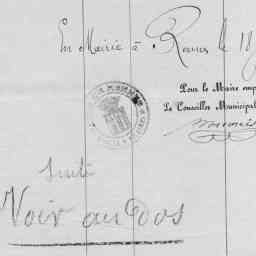 En Mairie à Rennes le 18
Pour le Maire emp
Le Conseiller Municipal
Suite
Voir au Dos